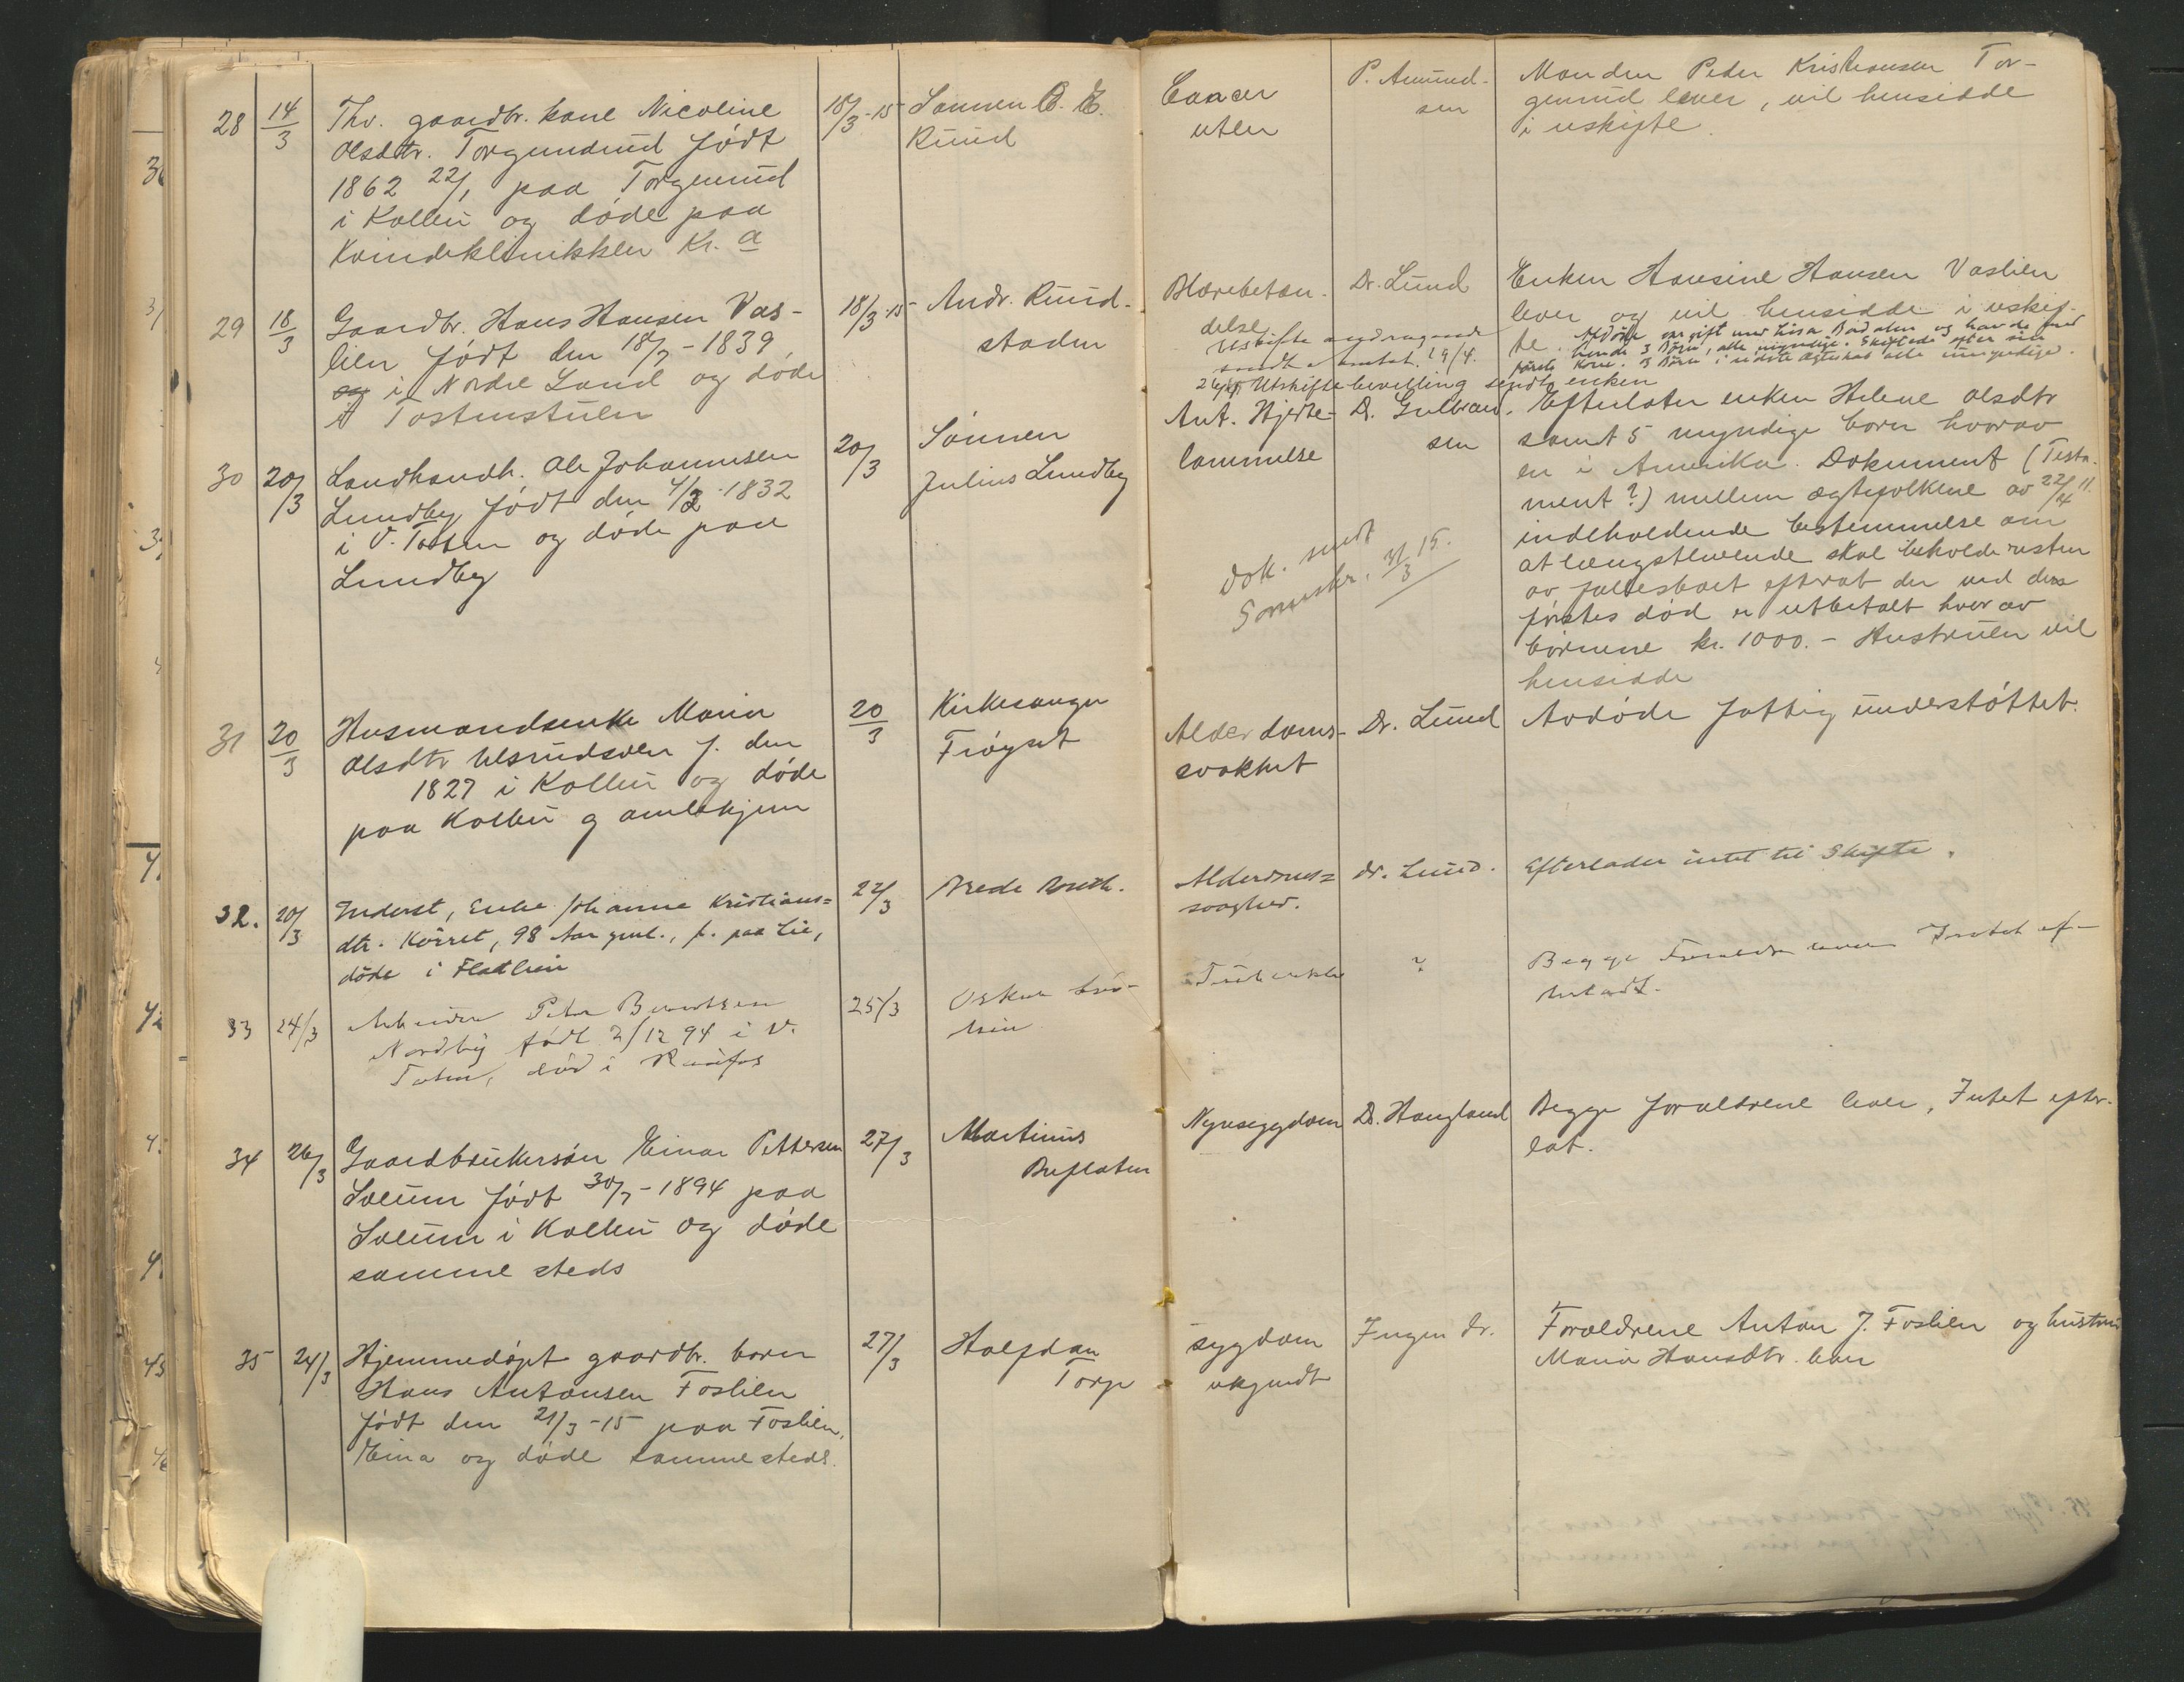 28 14/3 Thv. gaardbr. kone Nicoline
Olsdtr. Torgunrud født
1862 22/1 paa Torgunrud
i Kolbu og døde paa
Kvindeklinikken Kr. a
18/3-15 Sønnen O. E.
Ruud
Cancer
uteri
P. Amund-
sen
Manden Peder Kristiansen Tor-
gunrud lever, vil hensidde
i uskifte.
29 18/3 Gaardbr. Hans Hansen Vas-
lien født den 18/7-1839
i Nordre Land og døde
i Tostenstuen
18/3-15 Andr. Ruud-
staden
Blærebetæn-
delse
Uskifte andragende
sendt Amtet 19/4.
26/4 Utskiftebevilling sendt enken
Dr. Lund
Enken Hansine Hansen Vaslien
lever og vil hensidde i uskif-
te. Afdøde var gift med Lisa Bådalen og havde med
hende 3 Børn, alle myndige. Skiftede efter sin
første Kone. 3 Børn i sidste Ægteskab alle umyndige.
30 20/3 Landhandl. Ole Johannesen
Lundby født den 4/2-1832
i V. Toten og døde paa
Lundby
20/3 Sønnen
Julius Lundby
Ant. Hjerte-
lammelse
Dok. sendt
Sorenskr. 31/3 15.
D. Gulbrand-
sen
Efterlater enken Helene Olsdtr
samt 5 myndige børn hvorav
en i Amerika. Dokument (Testa-
ment?) mellem ægtefolkene av 22/4 11.
indeholdende bestemmelse om
at længstlevende skal beholde resten
av fællesboet efterat der ved den
førstes død er utbetalt hver av
børnene kr. 1000.- Hustruen vil
hensidde
31 20/3 Husmandsenke Maria
Olsdtr Ulsrudsveen f. den
1827 i Kolbu og døde
paa Kolbu gamlehjem
20/3 Kirkesanger
Frøyset
Alderdoms-
svakhet
Dr. Lund
Avdøde fattig understøttet.
32. 20/3 Inderst, Enke Johanne Kristians=
dtr. Kørret, 98 Aar gml., f. paa Lie,
døde i Flatlien
22/3
Alderdoms=
svaghed.
dr. Lund.
Efterlader intet til Skifte.
33 24/3 Arbeider Peter Berntsen
Nordby født 2/12 94 i V.
Toten, død i Raufos
25/3 Oskar
Tuberkler
?
Begge Forældre lever Intet ef-
terladt.
34 26/3 Gaardbrukersøn Einar Pettersen
Solum født 30/7-1894 paa
Solum i Kolbu og døde
samme steds
27/3 Martinus
Buflaten
Nyresygdom
Dr. Haugland
Begge forældrene lever, Intet efter-
lat.
35 24/3 Hjemmedøpt gaardbr. barn
Hans Antonsen Foslien
født den 21/3-15 paa Foslien,
Eina og døde samme steds.
27/3 Halfdan
Torp
sygdom
ukjendt
Ingen dr.
Forældrene Anton J. Foslien og hustru
Maria Hansdtr. lever